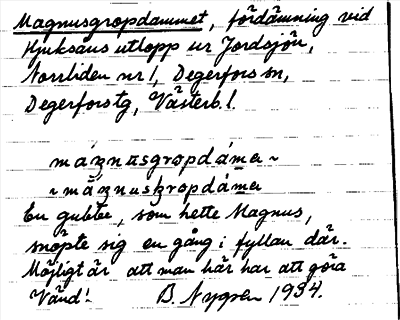 Magnusgropdammet, fördämning vid
Hjuksåns utlopp ur Jordsjön,
Norrliden nr 1, Degerfors sn,
Degerfors tg, Västerb. l.
máŋnusgropdáme ~
~ mäŋnusgropdáme
En gubbe, som hette Magnus,
snöpte sig en gång i fyllan där.
Möjligt är att man här har att göra
B. Nygren 1934.